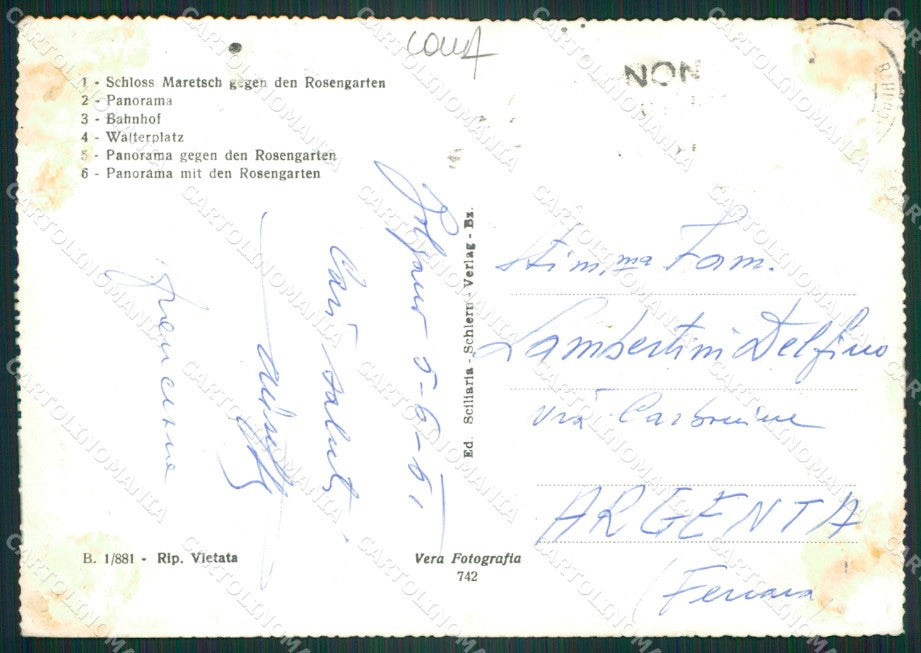 CONF
NON
1 - Schloss Maretsch gegen den Rosengarten
2 - Panorama
3 - Bahnhof
4 - Walterplatz
5 - Panorama gegen den Rosengarten
6 - Panorama mit den Rosengarten
Bolzano 5-6-51
Cari saluti
Ed. Sciliaria - Schlern - Verlag - Bz.
Stim.ma Fam.
Lambertini Delfino
Via Carbonine
ARGENTA
(Ferrara)
B. 1/881 - Rip. Vietata
Vera Fotografia
742
CARTOLINOMANIA